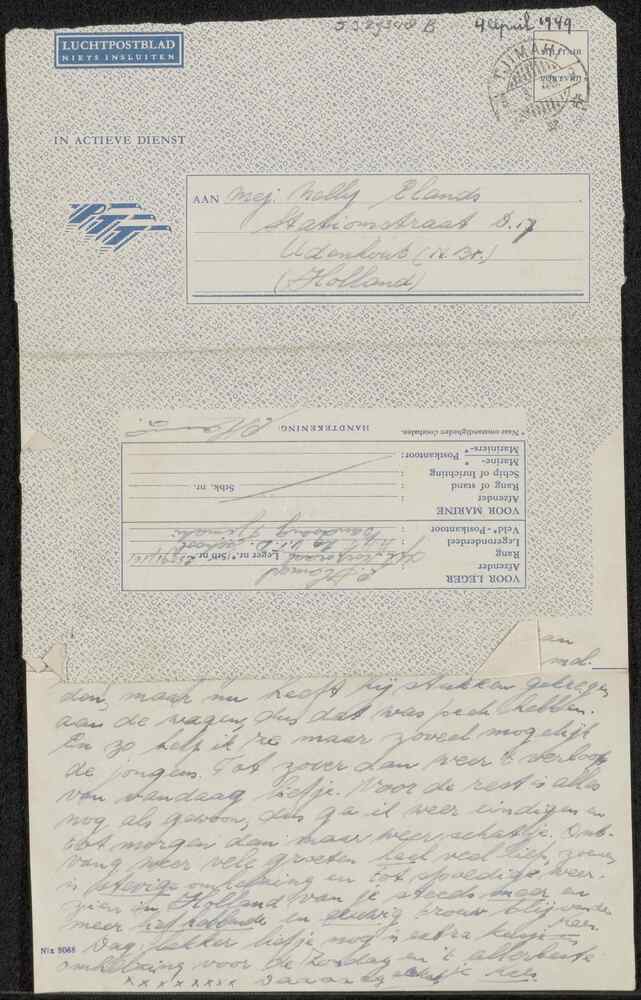 5323948 B
4 April 1949
LUCHTPOSTBLAD
NIETS INSLUITEN
TJIMAHI
IN ACTIEVE DIENST
PTT
AAN Mej. Nelly Elands
Stationstraat D.17
Udenhout (N.Br.)
(Holland)
VOOR LEGER
Afzender
Rang : Leger nr.*/Stb nr.
Legeronderdeel :
Veld-*-Postkantoor : Bandoeng Tjimahi
VOOR MARINE
Afzender :
Rang of stand : Stbk. nr.
Schip of Inrichting :
Marine-*
Mariniers-* Postkantoor:
* Naar omstandigheden doorhalen.
HANDTEKENING:
an
mid-
den, maar nu heeft hij stukken gekregen
aan de wagen, dus dat was pech hebben.
En zo help ik ze maar zoveel mogelijk
de jongens. Tot zover dan weer 't verloop
van vandaag liefje. Voor de rest is alles
nog als gewoon, dus ga ik weer eindigen en
tot morgen dan maar weer, schatje. Ont-
vang weer vele groeten heel veel liefs, zoenen
stevige omhelzing en tot spoedige weer-
zien in Holland van je steeds meer en
meer liefhebbende en eeuwig trouw blijvende
Kees
Dag lekker liefje nog 'n extra kusje en
omhelzing voor de Zondag en 't allerbeste
x x x x x x x x je Kees
Nix 8068